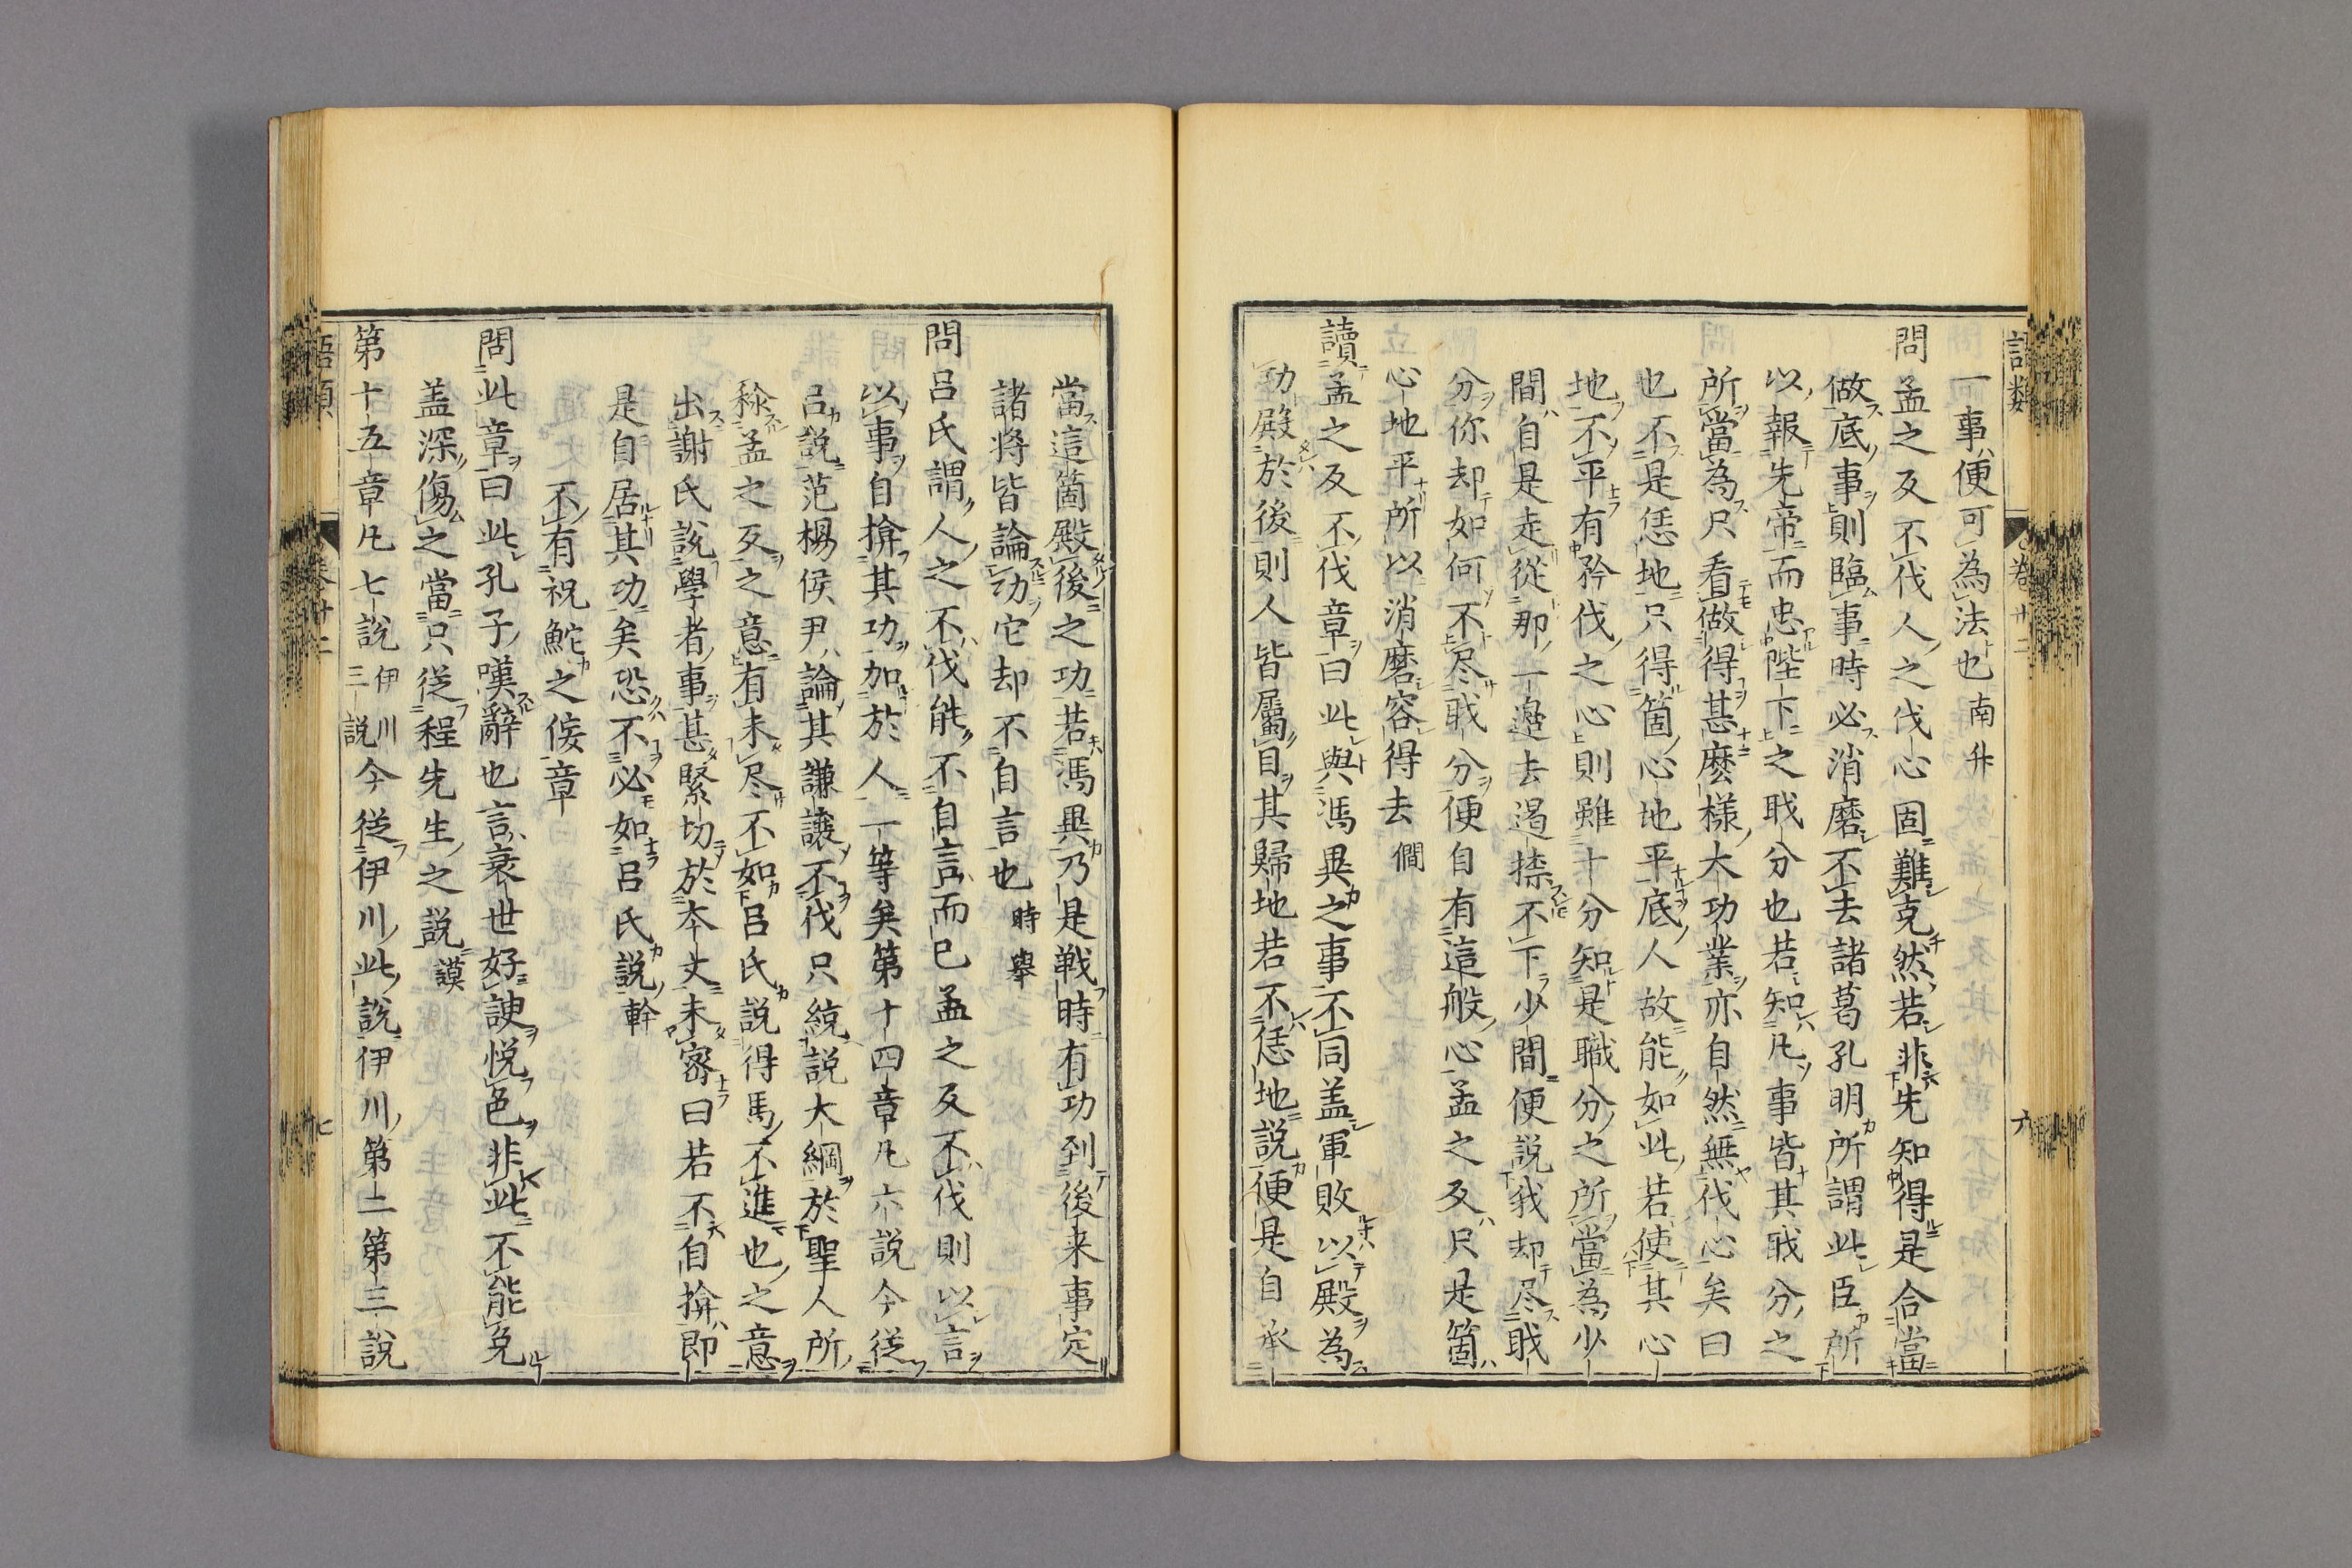 語類
卷廿二
六
一事便可為法也南升
問孟之反不伐人之伐心固難克然若非先知得是合當
做底事則臨事時必消磨不去諸葛孔明所謂此臣所
以報先帝而忠陛下之職分也若知凡事皆其職分之
所當為只看做得甚麽樣大功業亦自然無伐心矣曰
也不是恁地只得箇心地平底人故能如此若使其心
地不平有矜伐之心則雖十分知是職分之所當為少
間自是走從那一邊去遏捺不下少間便說我却尽職
分你却如何不尽職分便自有這般心孟之反只是箇
心地平所以消磨容得去僩
讀孟之反不伐章曰此與馮異之事不同盖軍敗以殿為
功殿於後則人皆屬目其歸地若不恁地說便是自承
當這箇殿後之功若馮異乃是戦時有功到後来事定
諸将皆論功它却不自言也時舉
問呂氏謂人之不伐能不自言而已孟之反不伐則以言
以事自揜其功加於人一等矣第十四章凢六說今從
呂說范楊侯尹論其謙讓不伐只統説大綱於聖人所
稱孟之反之意有未尽不如呂氏說得馬不進也之意
出謝氏說學者事甚緊切於本文未密曰若不自揜即
是自居其功矣恐不必如呂氏說幹
不有祝鮀之佞章
問此章曰此孔子嘆辭也言衰世好諛悦色非此不能免
盖深傷之當只従程先生之説謨
第十五章凢七說伊川三說今従伊川此說伊川第二第三說
語類
卷廿二
七